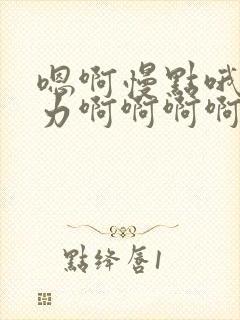 嗯啊慢點哦
力啊啊啊啊
點絳唇1